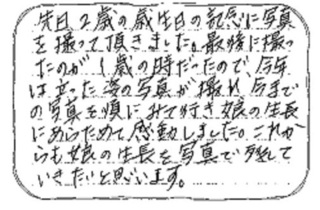 先日２歳の歳生日の記念に写真
を撮って頂きました。最後に撮っ
たのが１歳の時だったので、今年
は立った姿の写真が撮れ、今まで
の写真を順にみて行き娘の生長
にあらためて感動しました。これか
らも娘の生長を写真で残して
いきたいと思います。